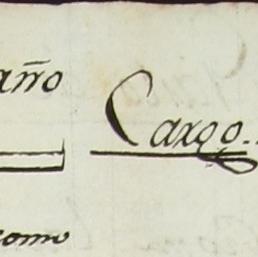 año
Cargo..
como